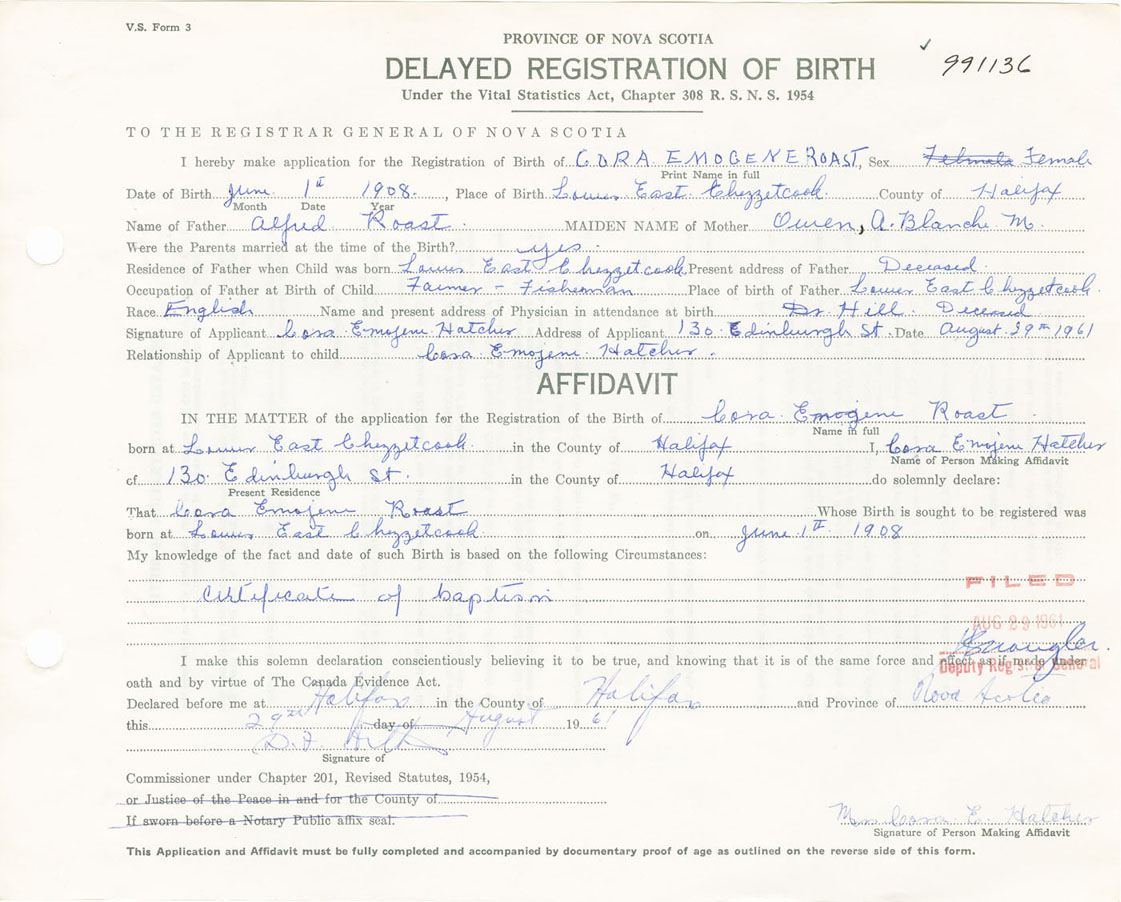 V.S. Form 3
PROVINCE OF NOVA SCOTIA
✓ 991136
DELAYED REGISTRATION OF BIRTH
Under the Vital Statistics Act, Chapter 308 R. S. N. S. 1954
TO THE REGISTRAR GENERAL OF NOVA SCOTIA
I hereby make application for the Registration of Birth of CORA EMOGENE ROAST, Sex Female
Print Name in full
Date of Birth June 1st 1908, Place of Birth Lower East Chezzetcook County of Halifax
Month Date Year
Name of Father Alfred Roast MAIDEN NAME of Mother Owen, A. Blanche M.
Were the Parents married at the time of the Birth? yes
Residence of Father when Child was born Lower East Chezzetcook Present address of Father Deceased
Occupation of Father at Birth of Child Farmer - Fisherman Place of birth of Father Lower East Chezzetcook
Race English Name and present address of Physician in attendance at birth Dr. Hill. Deceased
Signature of Applicant Cora Emojene Hatcher Address of Applicant 130 Edinburgh St. Date August 29th 1961
Relationship of Applicant to child Cora Emojene Hatcher.
AFFIDAVIT
IN THE MATTER of the application for the Registration of the Birth of Cora Emogene Roast
Name in full
born at Lower East Chezzetcook in the County of Halifax I, Cora Emojene Hatcher
Name of Person Making Affidavit
of 130 Edinburgh St. in the County of Halifax do solemnly declare:
Present Residence
That Cora Emojene Roast Whose Birth is sought to be registered was
born at Lower East Chezzetcook on June 1st 1908
My knowledge of the fact and date of such Birth is based on the following Circumstances:
FILED
Certificate of baptism
AUG 29 1961
I make this solemn declaration conscientiously believing it to be true, and knowing that it is of the same force and effect as if made under
Deputy Registrar General
oath and by virtue of The Canada Evidence Act.
Declared before me at Halifax in the County of Halifax and Province of Nova Scotia
this 29th day of August 1961
D. F.
Signature of
Commissioner under Chapter 201, Revised Statutes, 1954,
or Justice of the Peace in and for the County of
If sworn before a Notary Public affix seal.
Mrs Cora E. Hatcher
Signature of Person Making Affidavit
This Application and Affidavit must be fully completed and accompanied by documentary proof of age as outlined on the reverse side of this form.